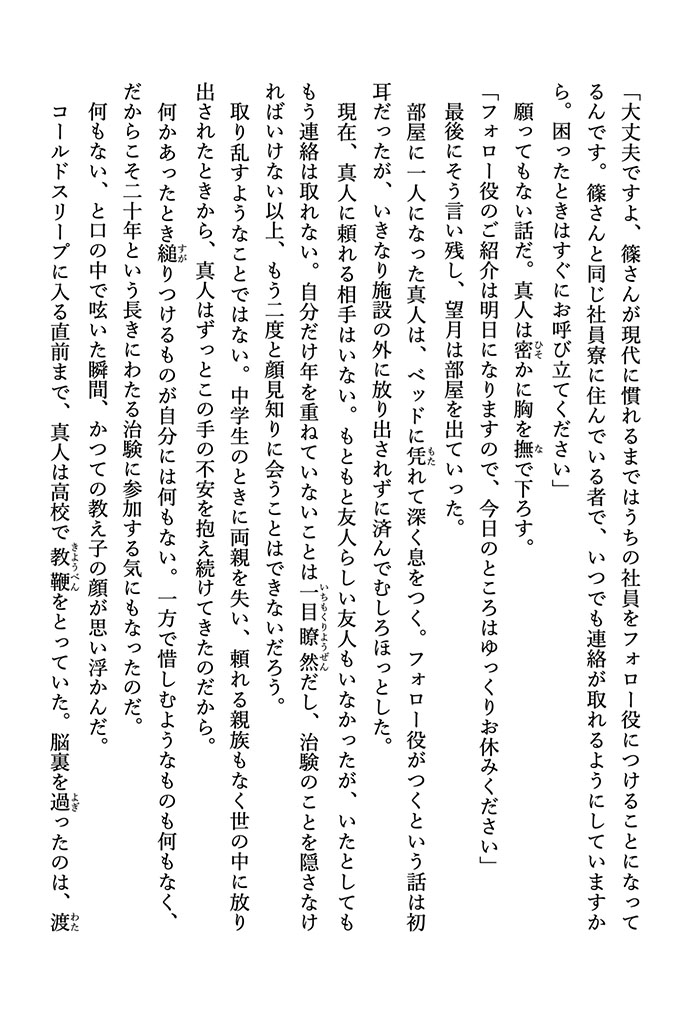 「大丈夫ですよ、篠さんが現代に慣れるまではうちの社員をフォロー役につけることになって
るんです。篠さんと同じ社員寮に住んでいる者で、いつでも連絡が取れるようにしていますか
ら。困ったときはすぐにお呼び立てください」
願ってもない話だ。真人は密かに胸を撫で下ろす。
「フォロー役のご紹介は明日になりますので、今日のところはゆっくりお休みください」
最後にそう言い残し、望月は部屋を出ていった。
部屋に一人になった真人は、ベッドに凭れて深く息をつく。フォロー役がつくという話は初
耳だったが、いきなり施設の外に放り出されずに済んでむしろほっとした。
現在、真人に頼れる相手はいない。もともと友人らしい友人もいなかったが、いたとしても
もう連絡は取れない。自分だけ年を重ねていないことは一目瞭然だし、治験のことを隠さなけ
ればいけない以上、もう二度と顔見知りに会うことはできないだろう。
取り乱すようなことではない。中学生のときに両親を失い、頼れる親族もなく世の中に放り
出されたときから、真人はずっとこの手の不安を抱え続けてきたのだから。
何かあったとき縋りつけるものが自分には何もない。一方で惜しむようなものも何もなく、
だからこそ二十年という長きにわたる治験に参加する気にもなったのだ。
何もない、と口の中で呟いた瞬間、かつての教え子の顔が思い浮かんだ。
コールドスリープに入る直前まで、真人は高校で教鞭をとっていた。脳裏を過ったのは、渡